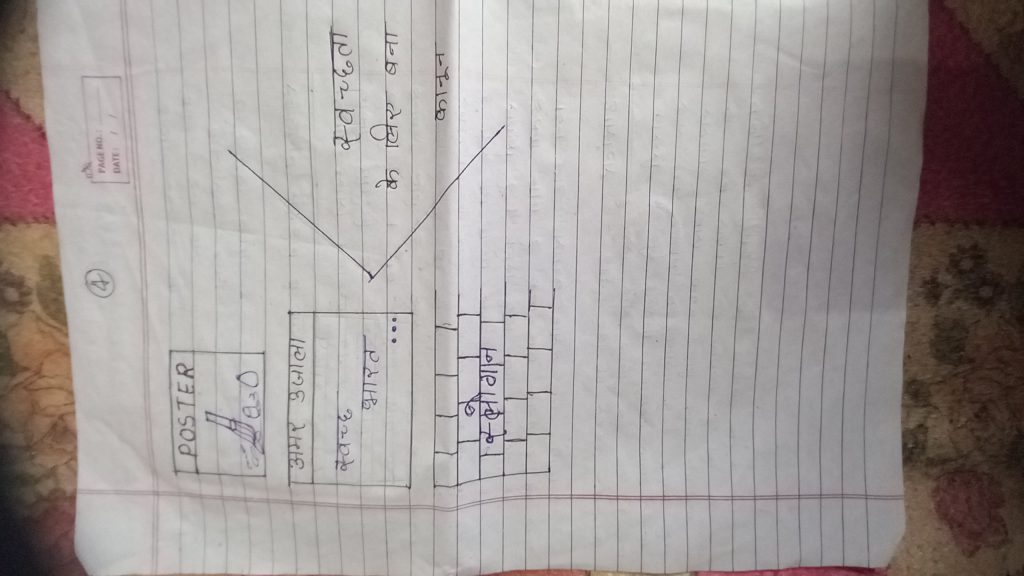 PAGE NO.:
DATE: / /
A
POSTER
अमर उजाला
स्वच्छ
भारत
...
स्लोगान
स्वच्छता
के लिए बना
कानून